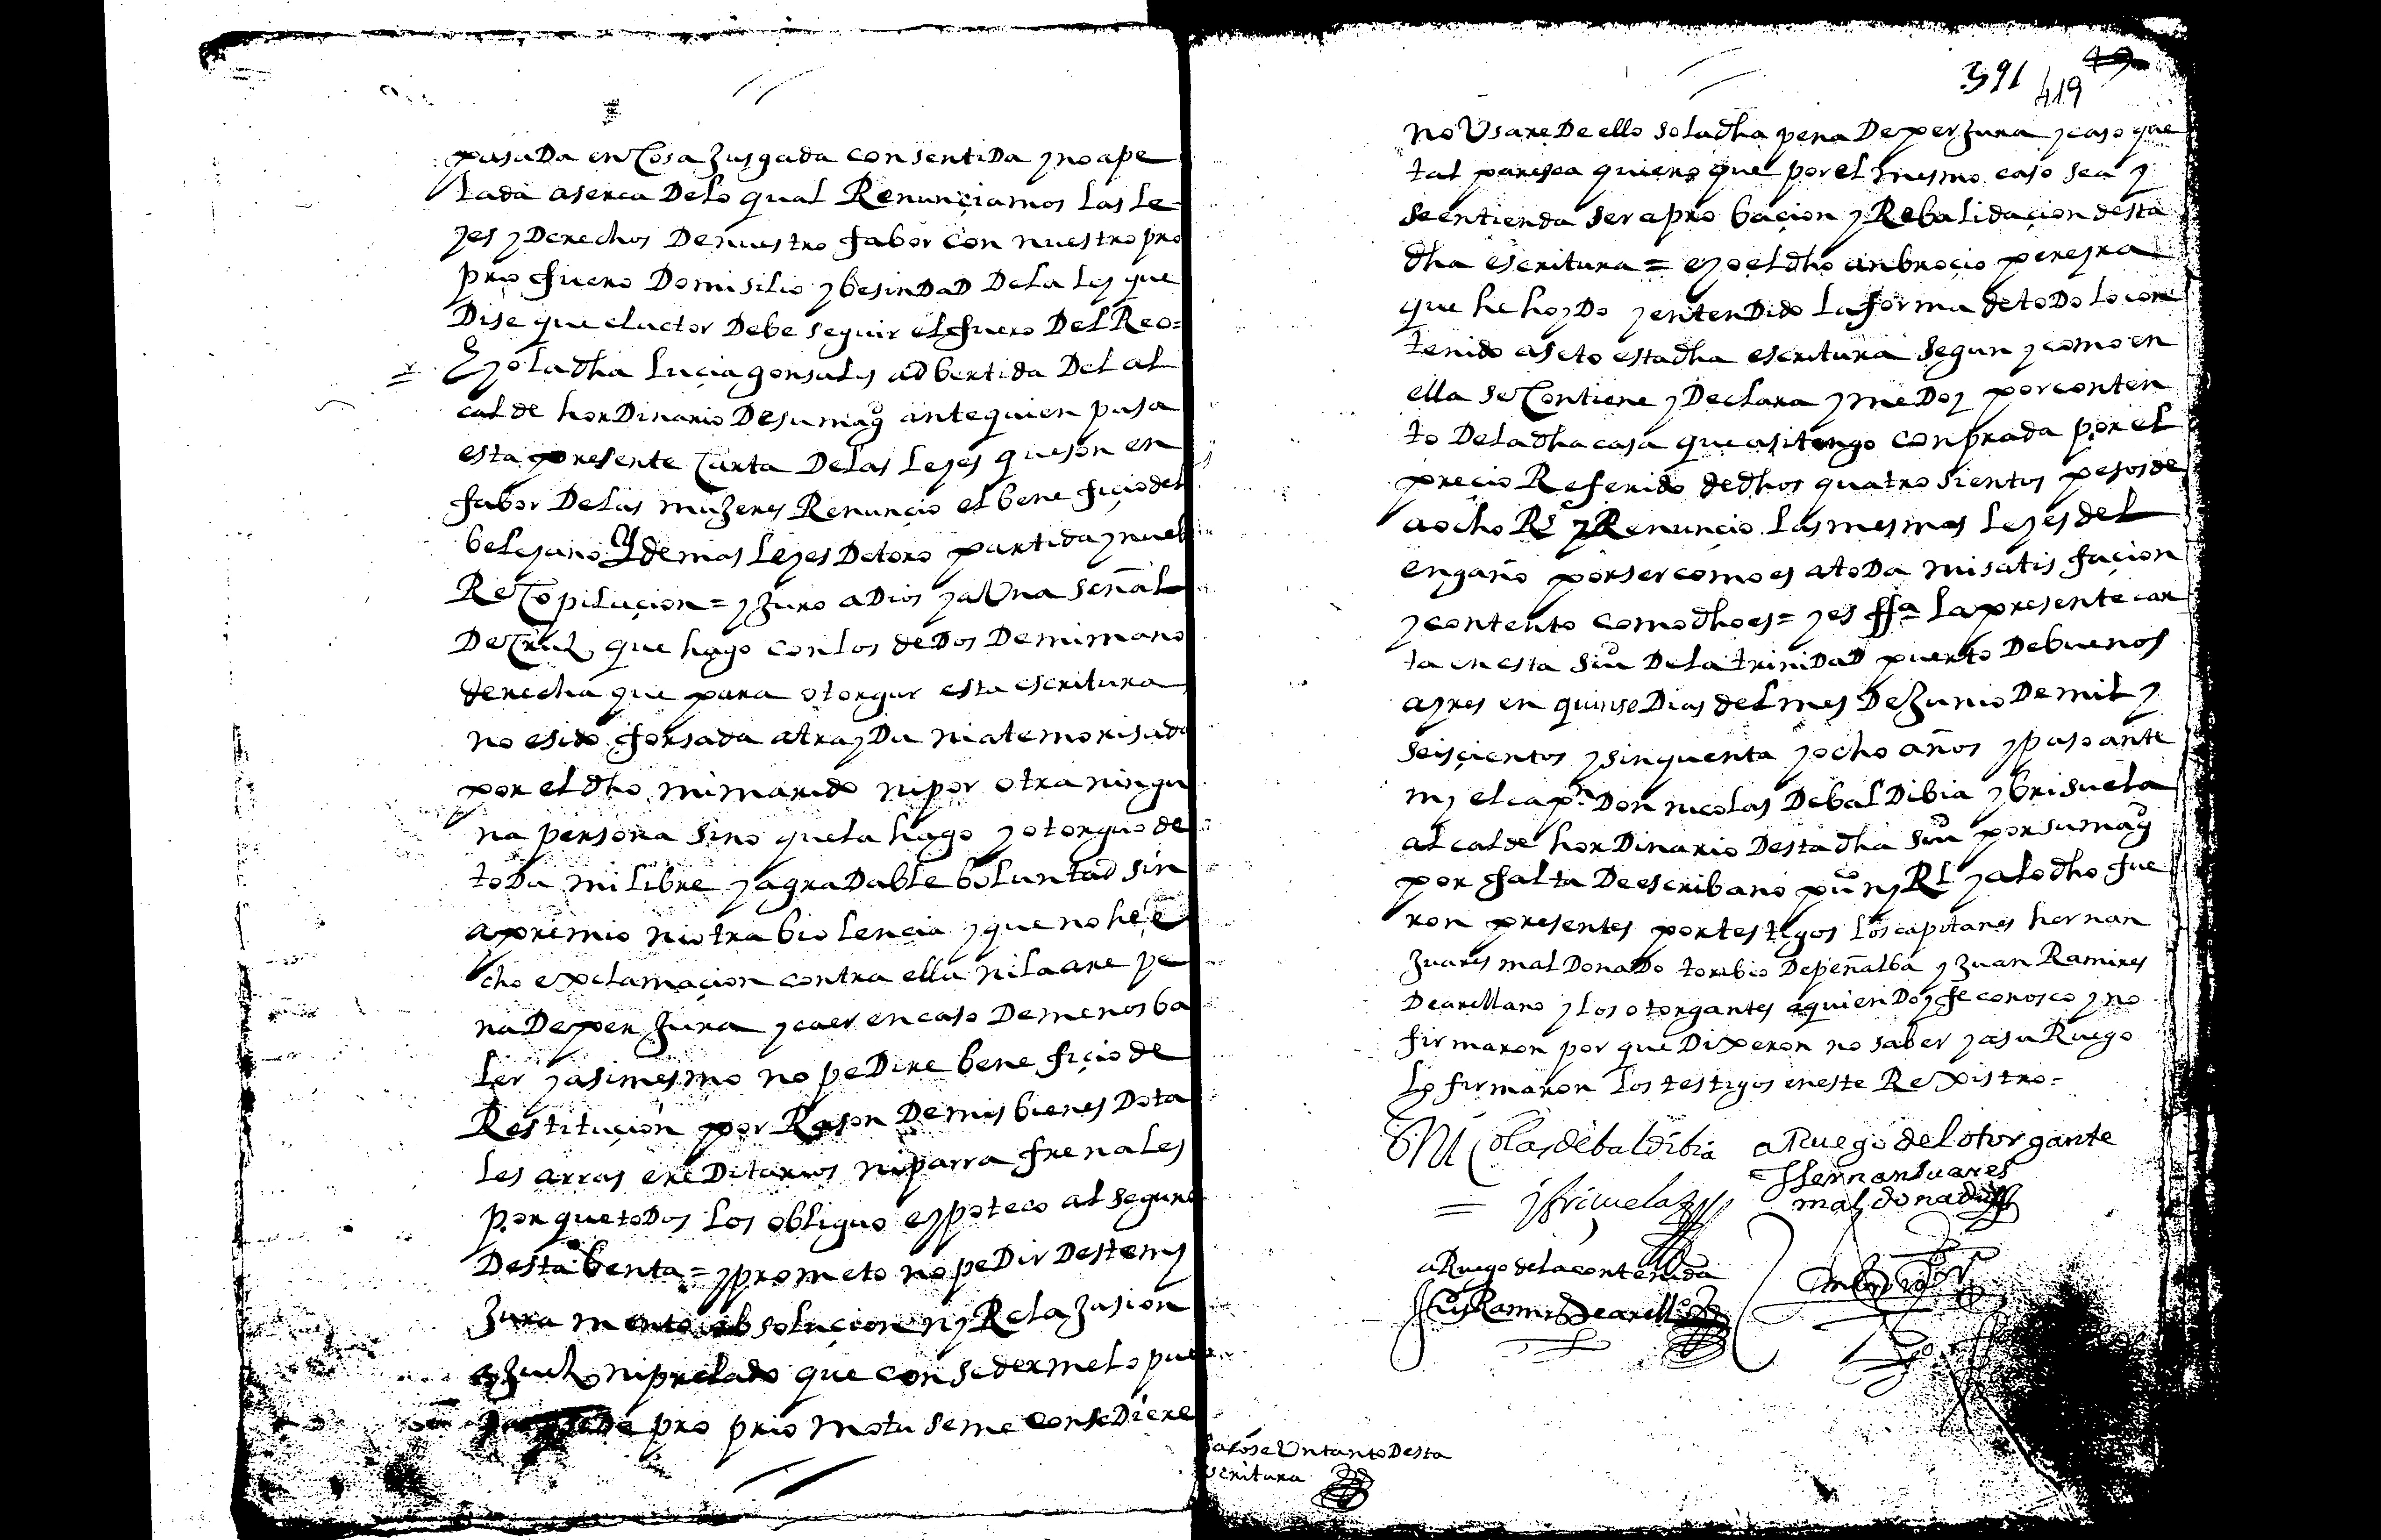 pasada en cosa jusgada consentida y no ape
lada aserca de lo qual Renunçiamos las le
yes y derechos de nuestro fabor con nuestro pro
prio fuero domisilio y besindad de la ley que
dise que el actor debe seguir el fuero del Reo =
E yo la dha luçia gonsales adbertida del al
calde hordinario de su magd ante quien pasa
esta presente carta de las leyes que son en
fabor de las mujeres Renunçio el benefiçio del
beleyano y demas leyes de toro partida y nueb
Recopilaçion = y juro a Dios y a Una señal
de cruz que hago con los dedos de mi mano
derecha que para otorgar esta escritura
no e sido forsada atrayda ni atemorisada
por el dho mi marido ni por otra ningu
na persona sino que la hago y otorguo de
toda mi libre y agradable boluntad sin
apremio ni otra biolencia y que no he e
cho exclamaçion contra ella ni la are pe
na de perjura y caer en caso de menos ba
ler y asimesmo no pedire benefiçio de
Restituçion por Rason de mis bienes dota
les arras ereditarios ni parrafrenales
porque todos los obliguo e ypoteco al seguro
desta benta = y prometo no pedir deste my
juramento absoluçion ny Relajasion
a juez ni prelado que consedermelo pue
de pro prio motu se me consediere
391 419 49
no Usare de ello so la dha pena de perjura y caso que
tal paresca quiero que por el mesmo caso sea y
se entienda ser aprobaçion y Rebalidaçion desta
dha escritura = e yo el dho anbroçio pereyra
que he hoydo y entendido la forma de todo lo con
tenido aseto esta dha escritura segun y como en
ella se contiene y declara y me doy por conten
to de la dha casa que asi tengo conprada por el
preçio Referido de dhos quatro sientos pesos de
a ocho Rs y Renunçio las mesmas leyes del
engaño por ser como es a toda mi satisfaçion
y contento como dho es = y es ffa la presente car
ta en esta siu de la trinidad puerto de buenos
ayres en quinse dias del mes de junio de mil y
seisçientos y sinquenta y ocho años y paso ante
my el capn Don nicolas de baldibia y brisuela
alcalde hordinario desta dha siu por su magd
por falta de escribano puco ny Rl y a lo dho fue
ron presentes por testigos los capitanes hernan
juares maldonado toribio de peñalba y juan Ramires
de arellano y los otorgantes a quien doy fe conosco y no
firmaron por que dixeron no saber y a su Ruego
lo firmaron los testigos en este Rexistro =
Nicolas de baldibia a Ruego del otorgante
Hernan suares
= y briçuela maldonado
a Ruego de la contenida
Ju Ramis de arello
sacose Un tanto desta
scritura